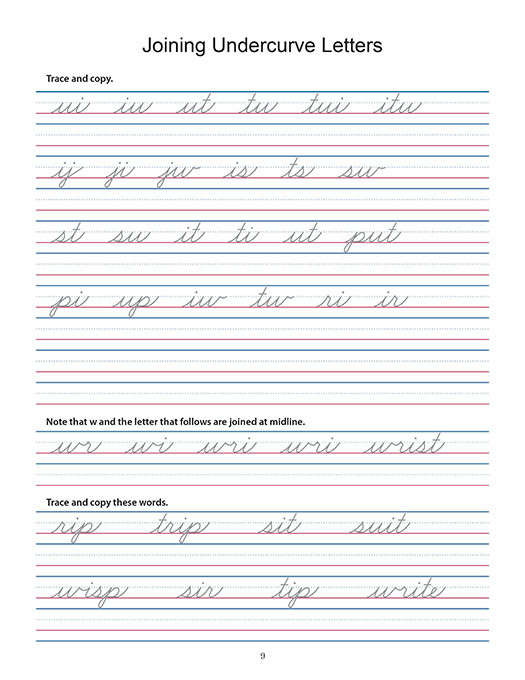 Joining Undercurve Letters
Trace and copy.
ui iu ut tu tui itu
ij ji jw is ts sw
st su it ti ut put
pi up iw tw ri ir
Note that w and the letter that follows are joined at midline.
wr wi wri wri wrist
Trace and copy these words.
rip trip sit suit
wisp sir tip write
9